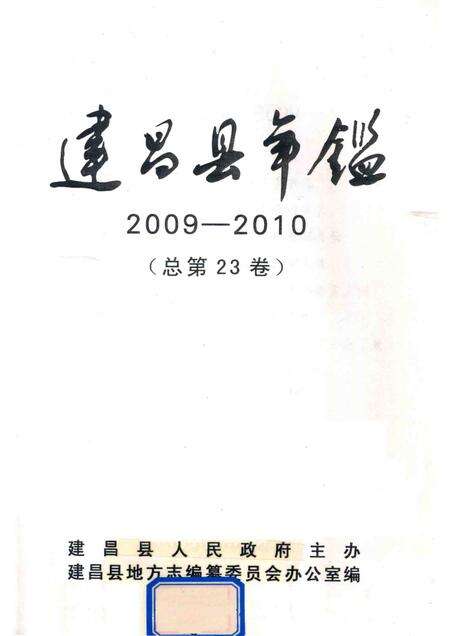 建昌县年鑑
2009—2010
（总第23卷）
建昌县人民政府主办
建昌县地方志编纂委员会办公室编